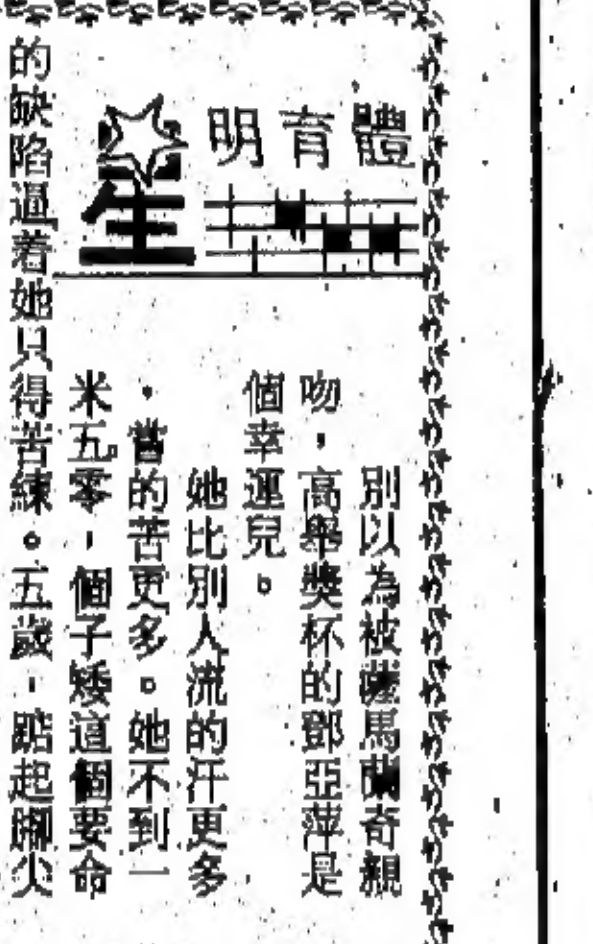 體育明星
別以為被薩馬蘭奇親
吻，高舉獎杯的鄧亞萍是
個幸運兒。
她比別人流的汗更多
，嘗的苦更多。她不到一
米五零，個子矮這個要命
的缺陷逼着她只得苦練。五歲，踮起腳尖